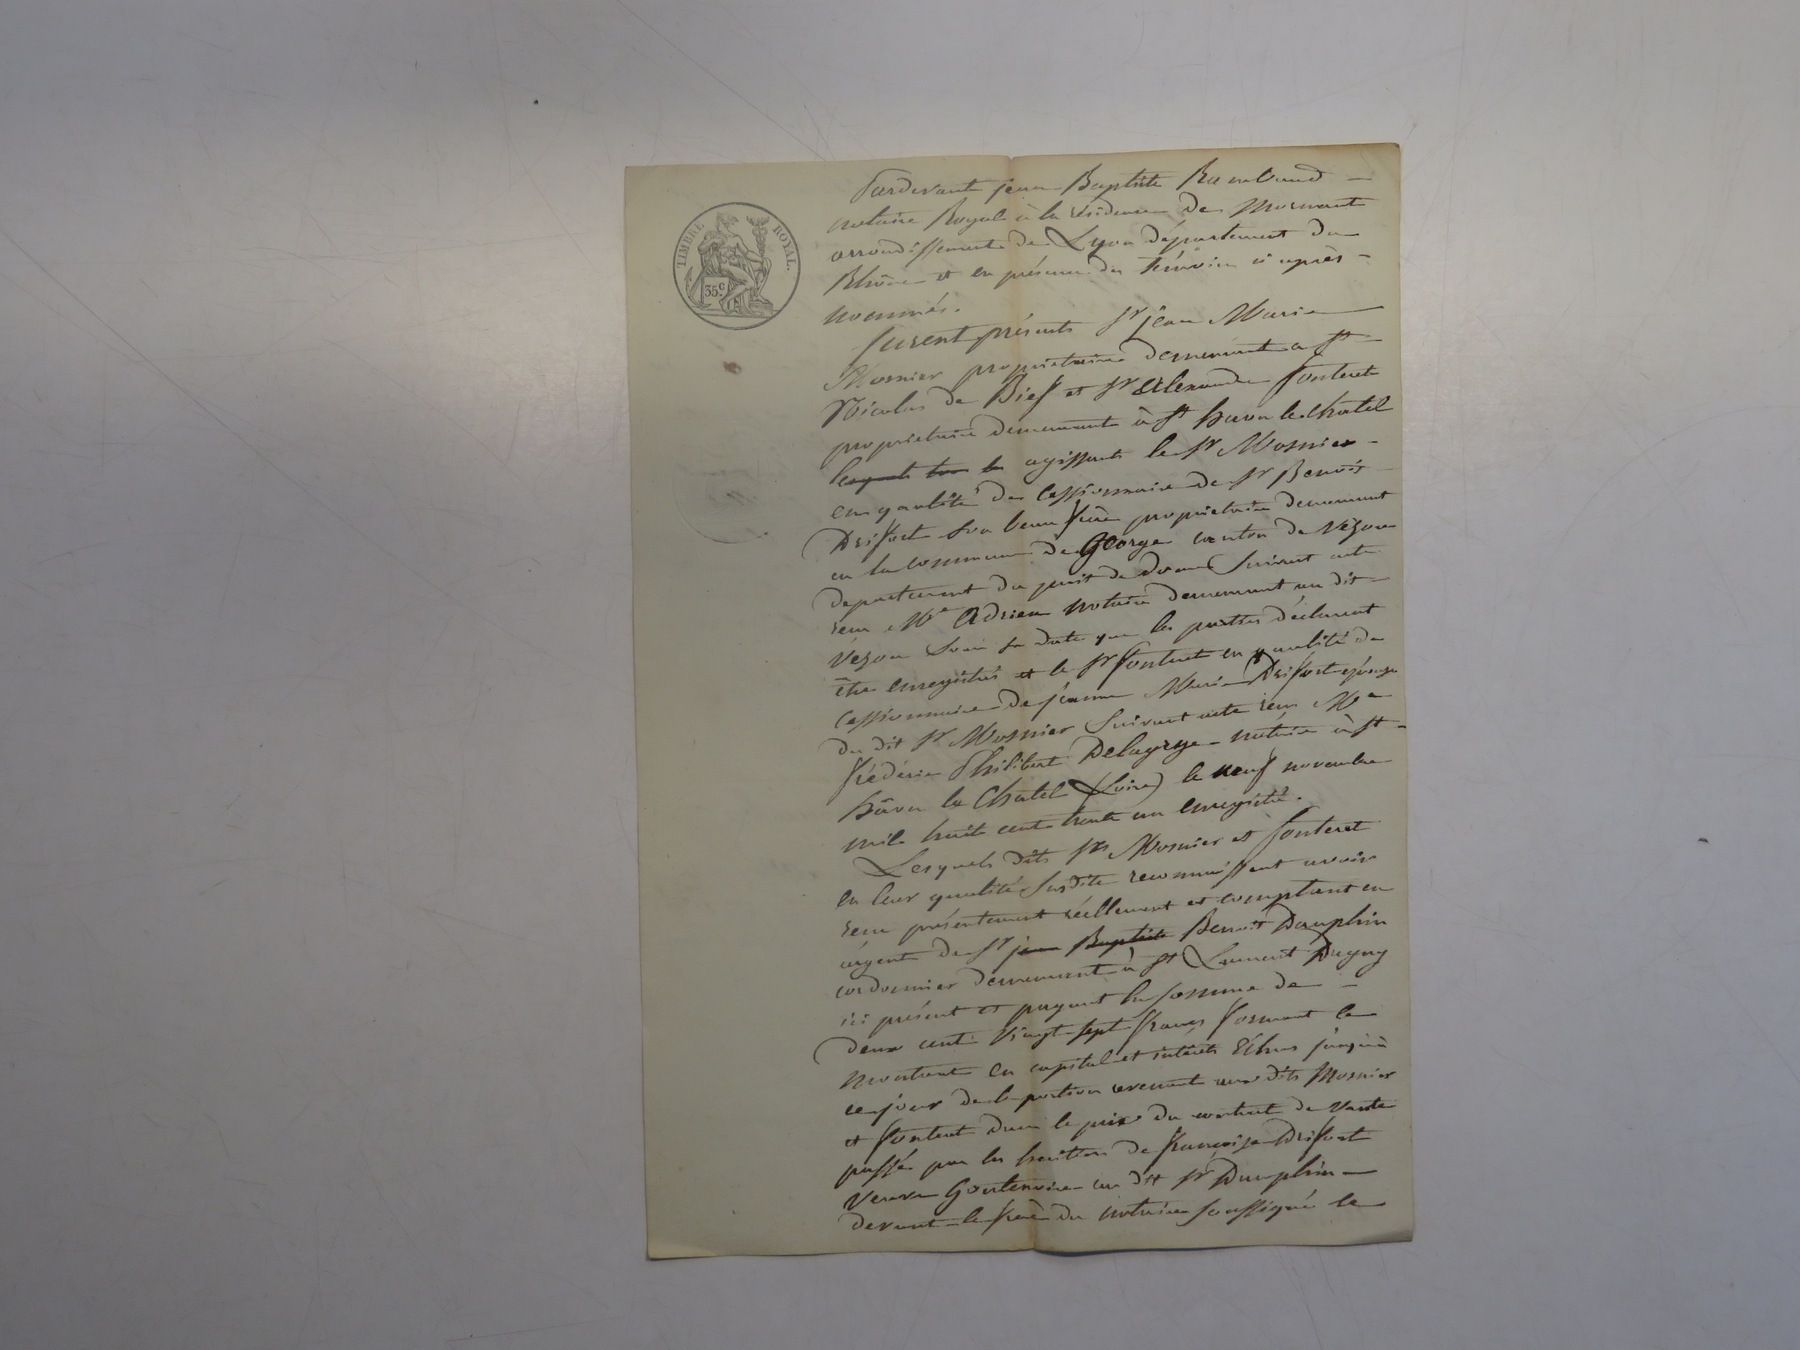 TIMBRE ROYAL.
35 c.
Pardevant jean Baptiste Rambaud
notaire Royal à la résidence de Mornant
arrondissement de Lyon département du
Rhône et en présence des témoins ci après
nommés.
furent présents Sr jean Marie
Mosnier propriétaire demeurant a St
Nicolas de Bief et Sr Alexandre fonteret
propriétaire demeurant à St haon le chatel
lesquels agissants le Sr Mosnier
en qualité de Cessionnaire de Sr Benoit
Driffort son beau frère propriétaire demeurant
en la commune de George canton de Vezou
departement du puit de dome suivant acte
reçu Me Adrien notaire demeurant au dit
Vezou sous sa date que les parties déclarent
être enregistré et le Sr fonteret en qualité de
Cessionnaire de jeanne Marie Driffort épouse
du dit Sr Mosnier suivant acte reçu Me
frédéric Philibert Delagrye notaire à St
hâon le Chatel (Loire) le neuf novembre
mil huit cent trente un enregistré.
Lesquels dits Srs Mosnier et fonteret
en leur qualité susdite reconnaissent avoir
reçu présentement réellement et comptant en
argent de Sr jean Baptiste Benoit Dauphin
cordonnier demeurant à St Laurent Dagny
ici présent et payant la somme de
deux cent vingt sept francs formant le
montant en capital et intérêts échus jusqu'à
ce jour de la portion revenant aux dits Mosnier
et fonteret dans le prix du contrat de vente
passée par les héritiers de françoise Driffort
veuve Goutenoire au dit Sr Dauphin
devant le frère du notaire soussigné le